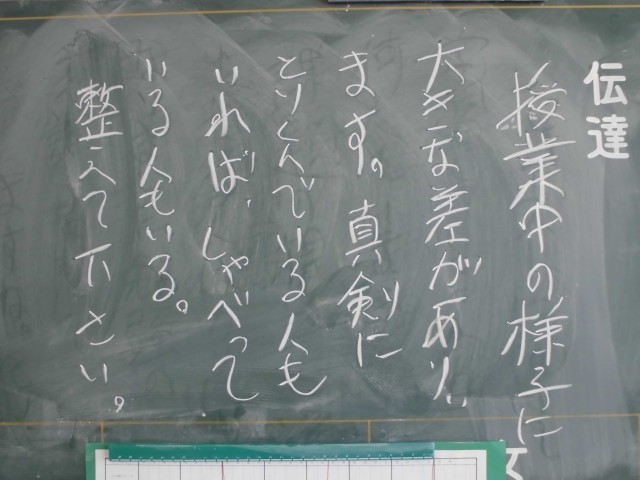 伝達
授業中の様子に
大きな差があり
ます。真剣に
とりくんでいる人も
いれば、しゃべって
いる人もいる。
整えて下さい。